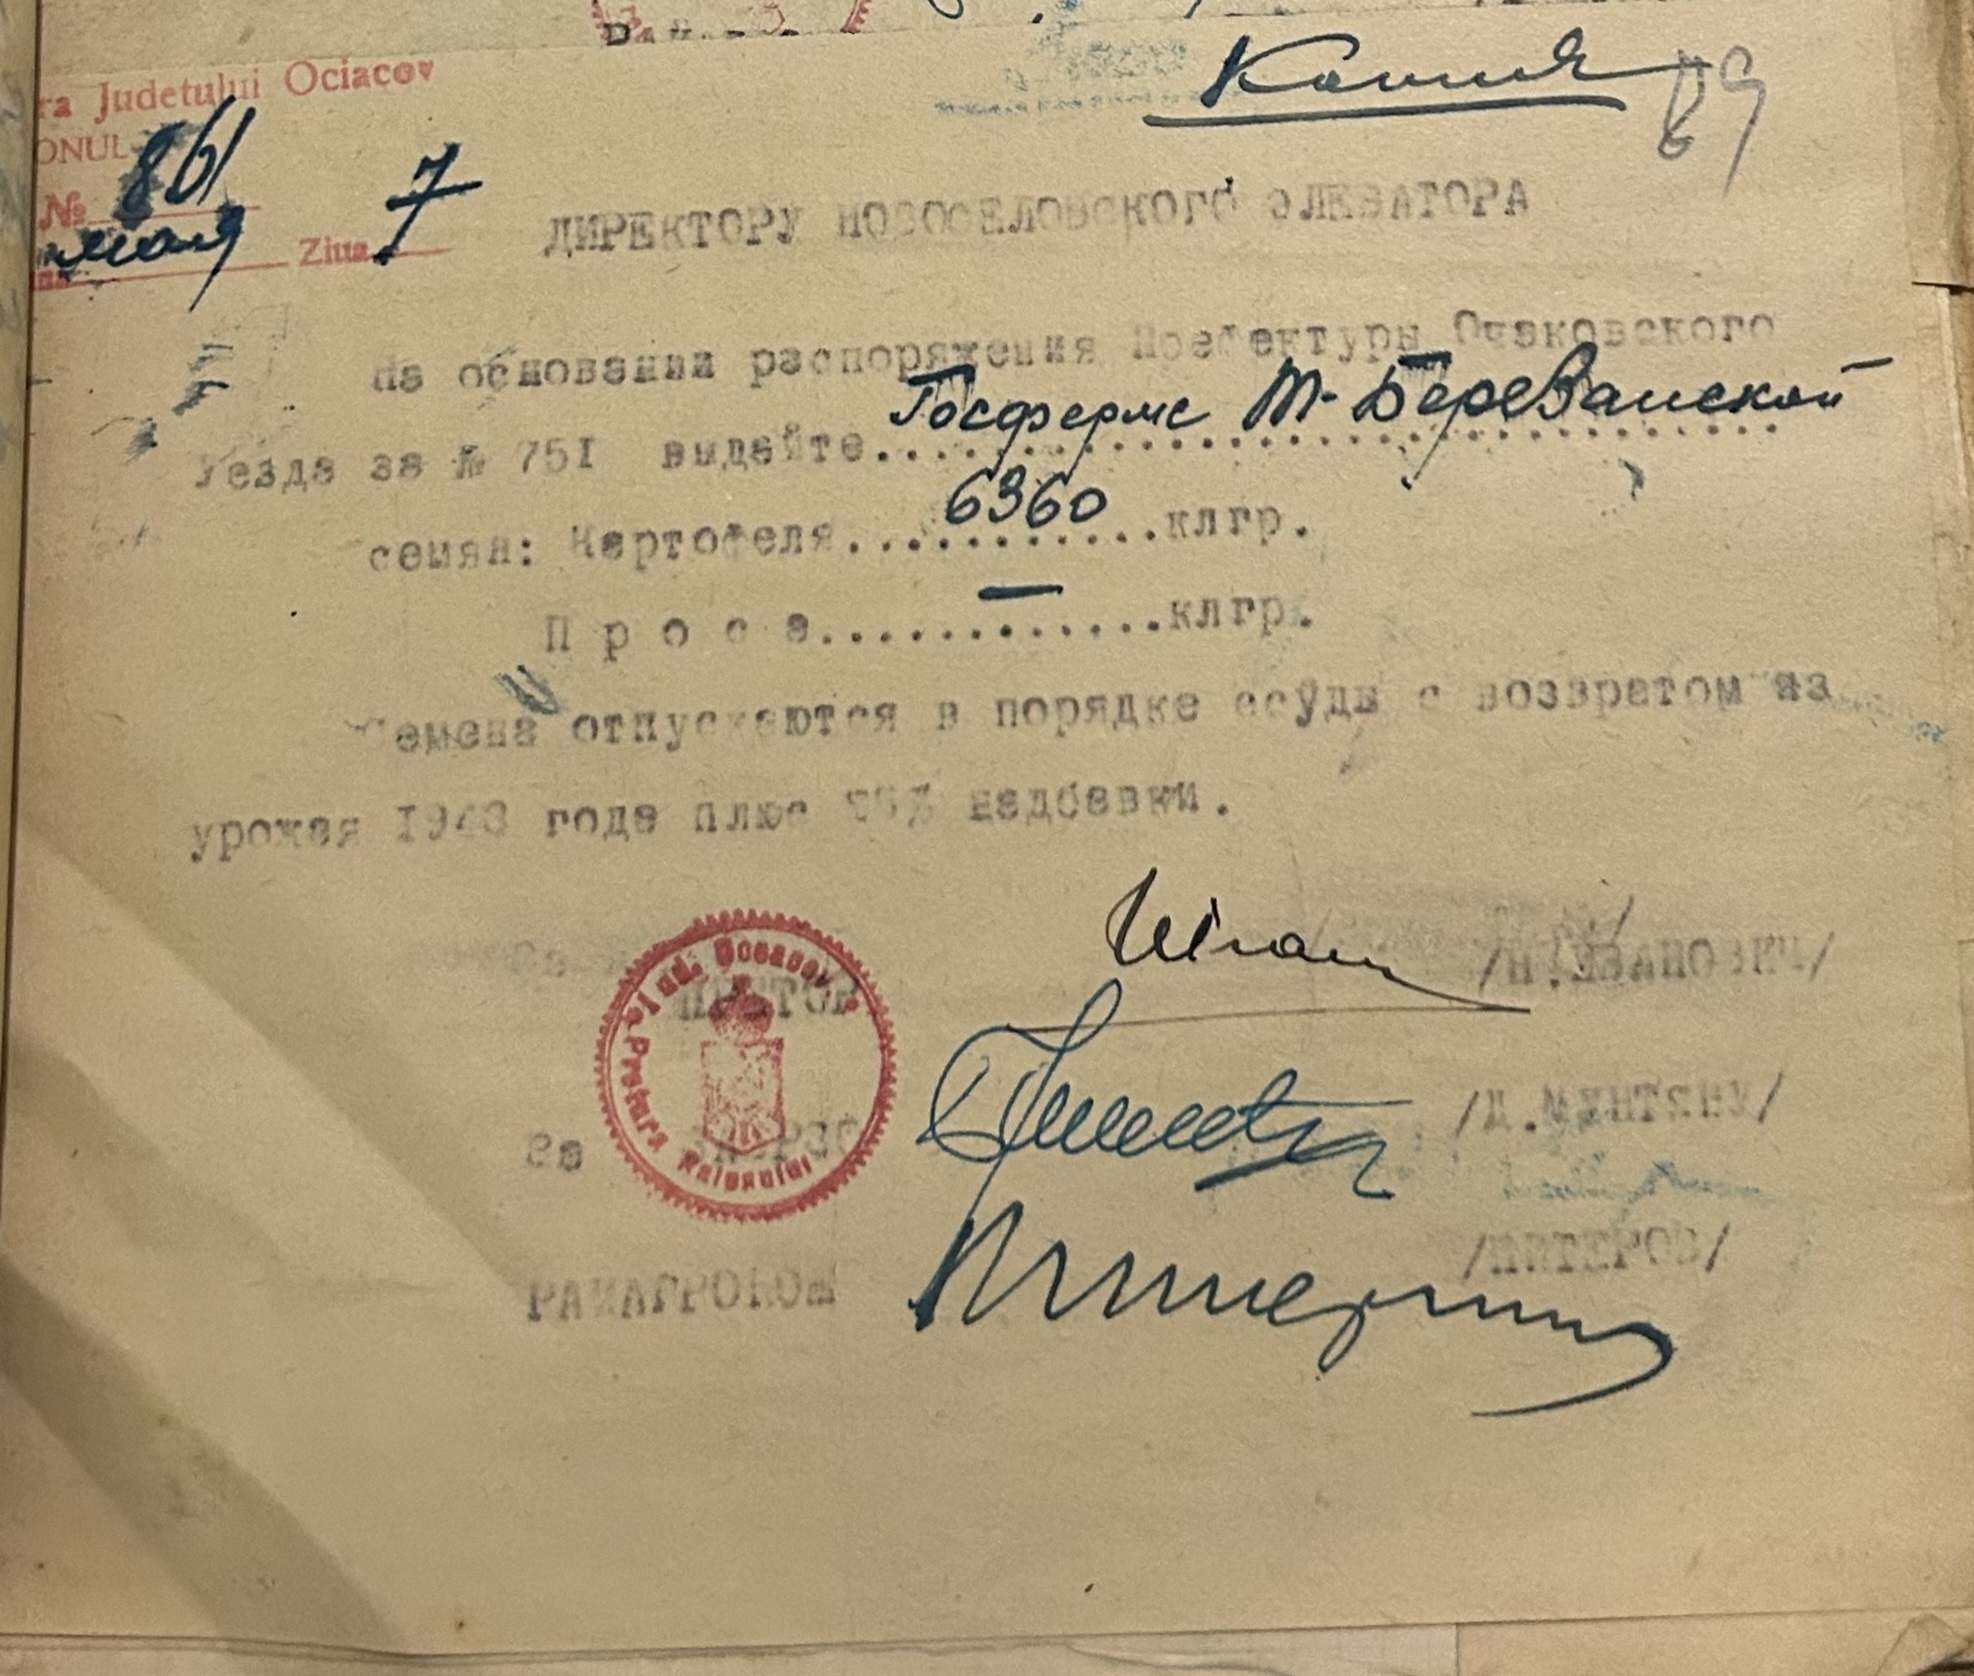 Копия
89
ra Judetului Ociacov
ONUL
№ 861
мая Ziua 7
ДИРЕКТОРУ НОВОСЕЛОВСКОГО ЭЛЕВАТОРА
На основании распоряжения Префектуры Очаковского
Уезда за № 751 выдайте..... Госферме Т-Березанской
семян: Картофеля..... 6360 .....клгр.
П р о с а..... — .....клгр.
Семена отпускаются в порядке ссуды с возвратом из
урожая 1943 года плюс надбавки.
ПРЕТОР /Н.ИВАНОВИЧ/
Pretura Raionului
jud. Oceacov
За /Д.МУНТЯНУ/
РАЙАГРОНОМ /ПИТЕРОВ/